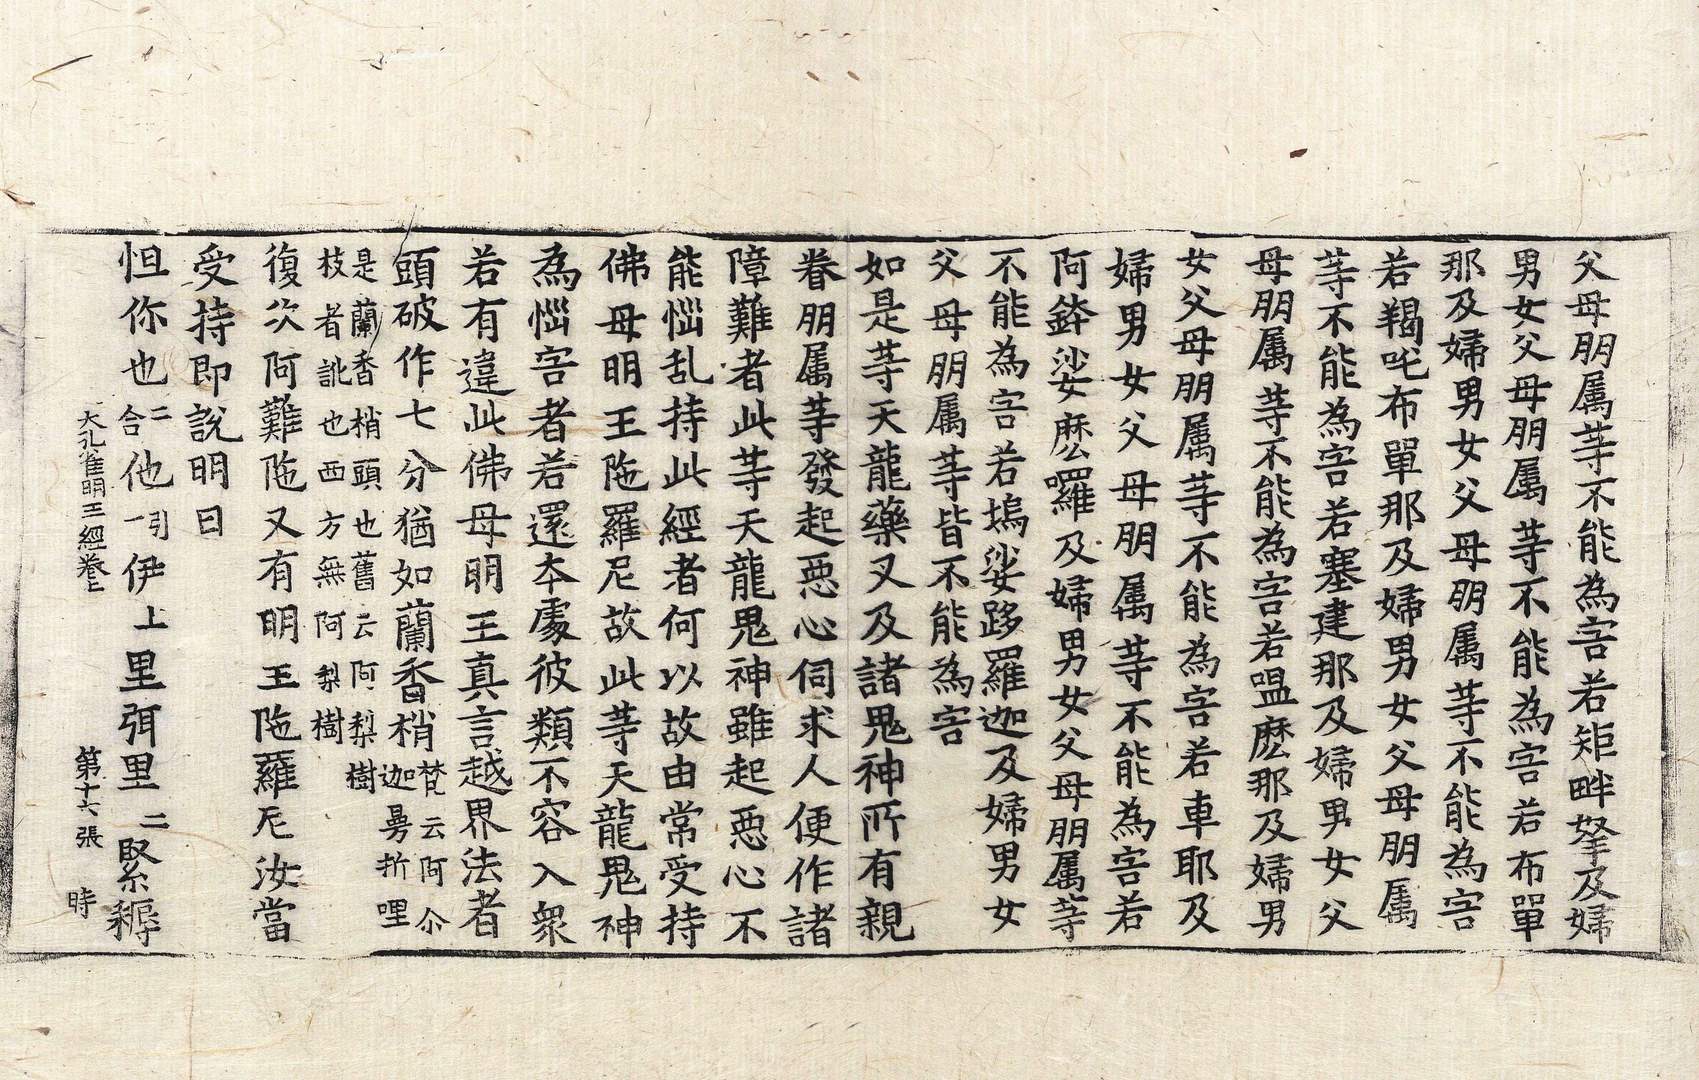 父母朋属䓁不能為害若矩畔拏及婦
男女父母朋属䓁不能為害若布單
那及婦男女父母朋属䓁不能為害
若羯吒布單那及婦男女父母朋属
䓁不能為害若塞建那及婦男女父
母朋属䓁不能為害若嗢麽那及婦男
女父母朋属䓁不能為害若車耶及
婦男女父母朋属䓁不能為害若
阿鉢娑麽囉及婦男女父母朋属䓁
不能為害若塢娑跢羅迦及婦男女
父母朋属䓁皆不能為害
如是䓁天龍藥叉及諸鬼神所有親
眷朋属䓁發起惡心伺求人便作諸
障難者此䓁天龍鬼神雖起惡心不
能惱乱持此經者何以故由常受持
佛母明王陁羅尼故此䓁天龍鬼神
為惱害者若還本處彼類不容入衆
若有違此佛母明王真言越界法者
頭破作七分猶如蘭香梢梵云阿尒迦曼折哩
是蘭香梢頭也舊云阿梨樹枝者訛也西方無阿梨樹
復次阿難陁又有明王陁羅尼汝當
受持即說明曰
怛你也二合他引一伊上里弭里二緊㮏
大孔雀明王經卷上 第十六張 時